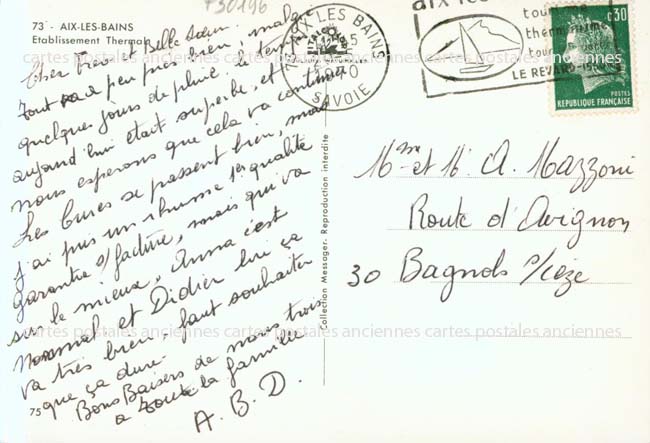 F30196
73 - AIX-LES-BAINS
Etablissement Thermal
Cher Frère et Belle Sœur
Tout va à peu près bien, malgré
quelques jours de pluie, le temps
aujourd'hui était superbe, et
nous esperons que cela va continuer
Les Cures se passent bien, mais
j'ai pris un rhume 1er qualité
garantie s/facture, mais qui va
sur le mieux. Anna c'est
normal et Didier lui ça
va très bien, faut souhaiter
que ça dure.
Bons Baisers de nous trois
a toute la famille
A. B. D.
75
Collection Messager. Reproduction interdite
73 AIX LES BAINS
SAVOIE
aix les
tourisme
thermalisme
LE REVARD
0,30
POSTES
REPUBLIQUE FRANÇAISE
Mme et M. A. Mazzoni
Route d'Avignon
30 Bagnols s/Cèze
cartes postales anciennes cartes postales anciennes cartes postales anciennes
cartes postales anciennes cartes postales anciennes cartes postales anciennes